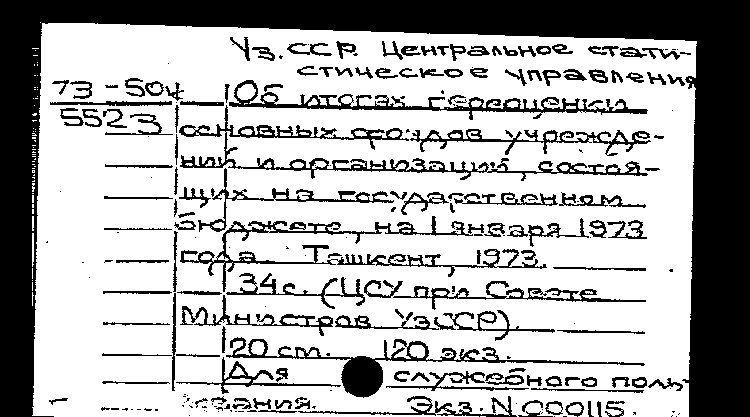 Уз. ССР. Центральное стати-
стическое управления
73-504
5523
Об итогах переоценки
основных фондов учрежде-
ний и организаций, состоя-
щих на государственном
бюджете, на 1 января 1973
года. Ташкент, 1973.
34с. (ЦСУ при Совете
Министров УзССР).
20 ст. 120 экз.
Для служебного поль-
зования. Экз. N 000115.